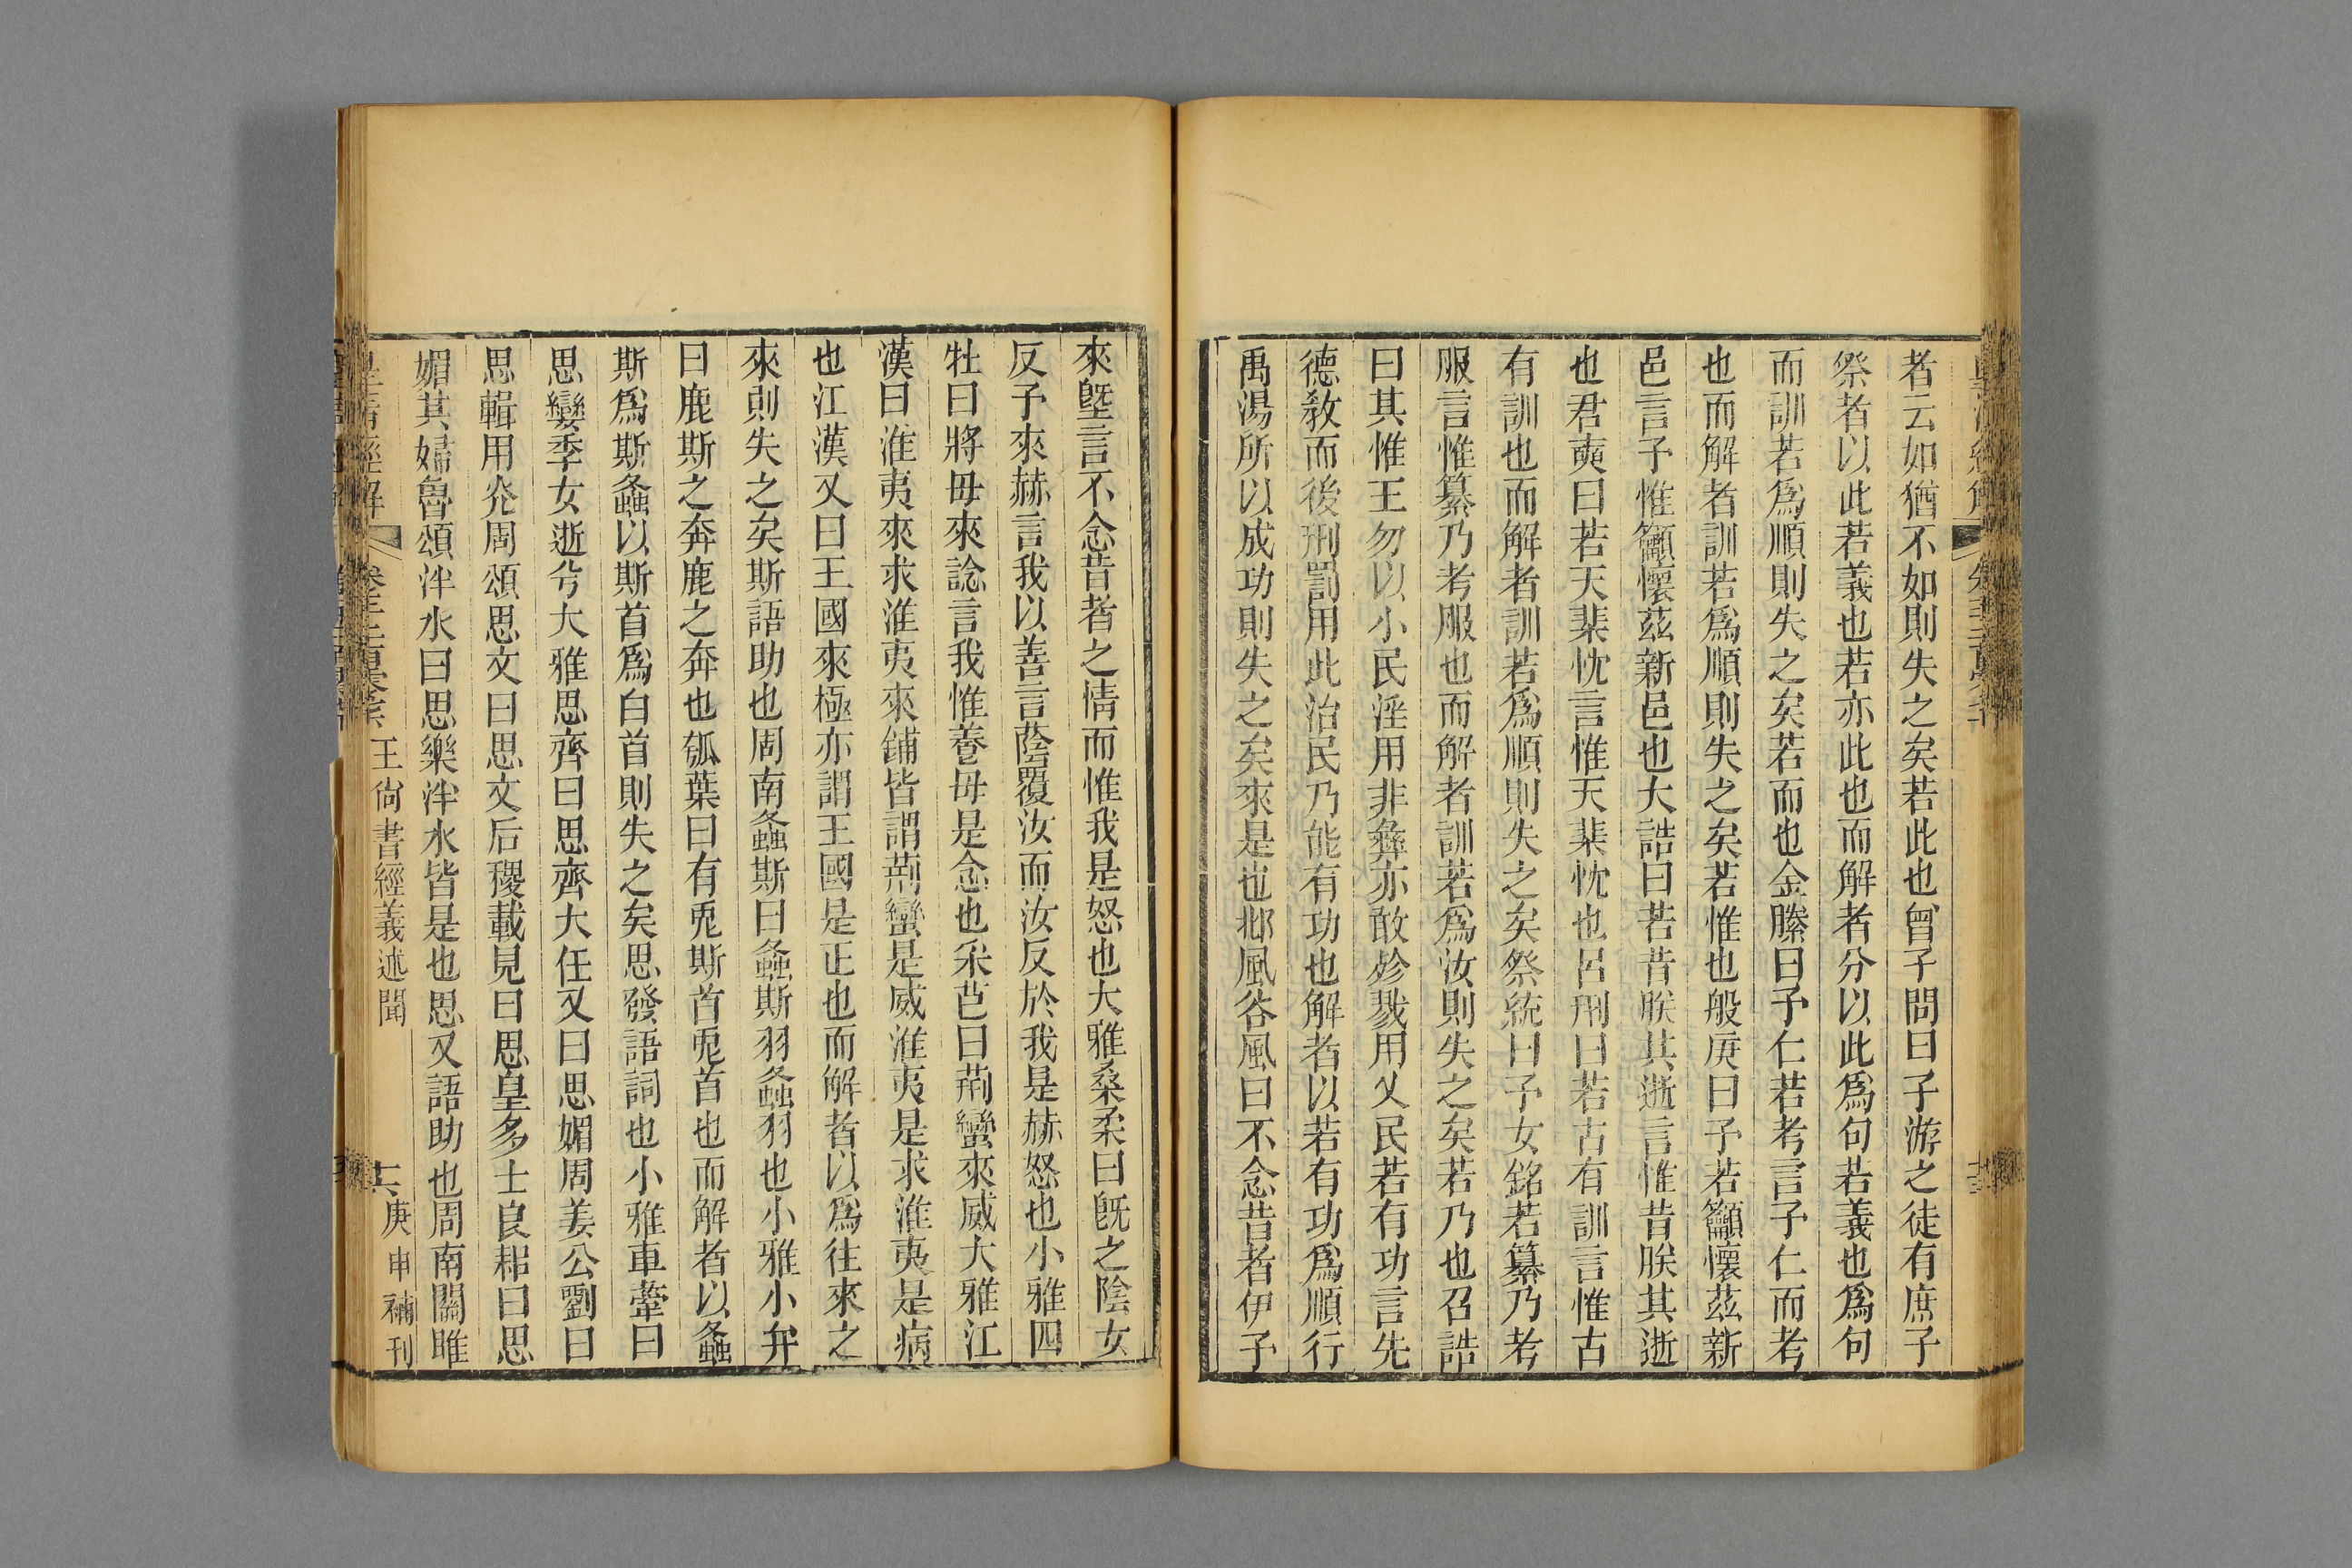 者云如猶不如則失之矣若此也曾子問曰子游之徒有庶子
祭者以此若義也若亦此也而解者分以此爲句若義也爲句
而訓若爲順則失之矣若而也金縢曰予仁若考言予仁而考
也而解者訓若爲順則失之矣若惟也般庚曰予若籲懷茲新
邑言予惟籲懷茲新邑也大誥曰若昔朕其逝言惟昔朕其逝
也君奭曰若天棐忱言惟天棐忱也呂刑曰若古有訓言惟古
有訓也而解者訓若爲順則失之矣祭統曰予女銘若纂乃考
服言惟纂乃考服也而解者訓若爲汝則失之矣若乃也召誥
曰其惟王勿以小民淫用非彝亦敢殄戮用乂民若有功言先
德敎而後刑罰用此治民乃能有功也解者以若有功爲順行
禹湯所以成功則失之矣來是也邶風谷風曰不念昔者伊予
來墍言不念昔者之情而惟我是怒也大雅桑柔曰旣之陰女
反予來赫言我以善言蔭覆汝而汝反於我是赫怒也小雅四
牡曰將母來諗言我惟養母是念也采芑曰荊蠻來威大雅江
漢曰淮夷來求淮夷來鋪皆謂荊蠻是威淮夷是求淮夷是病
也江漢又曰王國來極亦謂王國是正也而解者以爲往來之
來則失之矣斯語助也周南螽斯曰螽斯羽螽羽也小雅小弁
曰鹿斯之奔鹿之奔也瓠葉曰有兎斯首兎首也而解者以螽
斯爲斯螽以斯首爲白首則失之矣思發語詞也小雅車舝曰
思孌季女逝兮大雅思齊曰思齊大任又曰思媚周姜公劉曰
思輯用光周頌思文曰思文后稷載見曰思皇多士良耜曰思
媚其婦魯頌泮水曰思樂泮水皆是也思又語助也周南關雎
皇清經解
王尙書經義述聞
庚申補刊